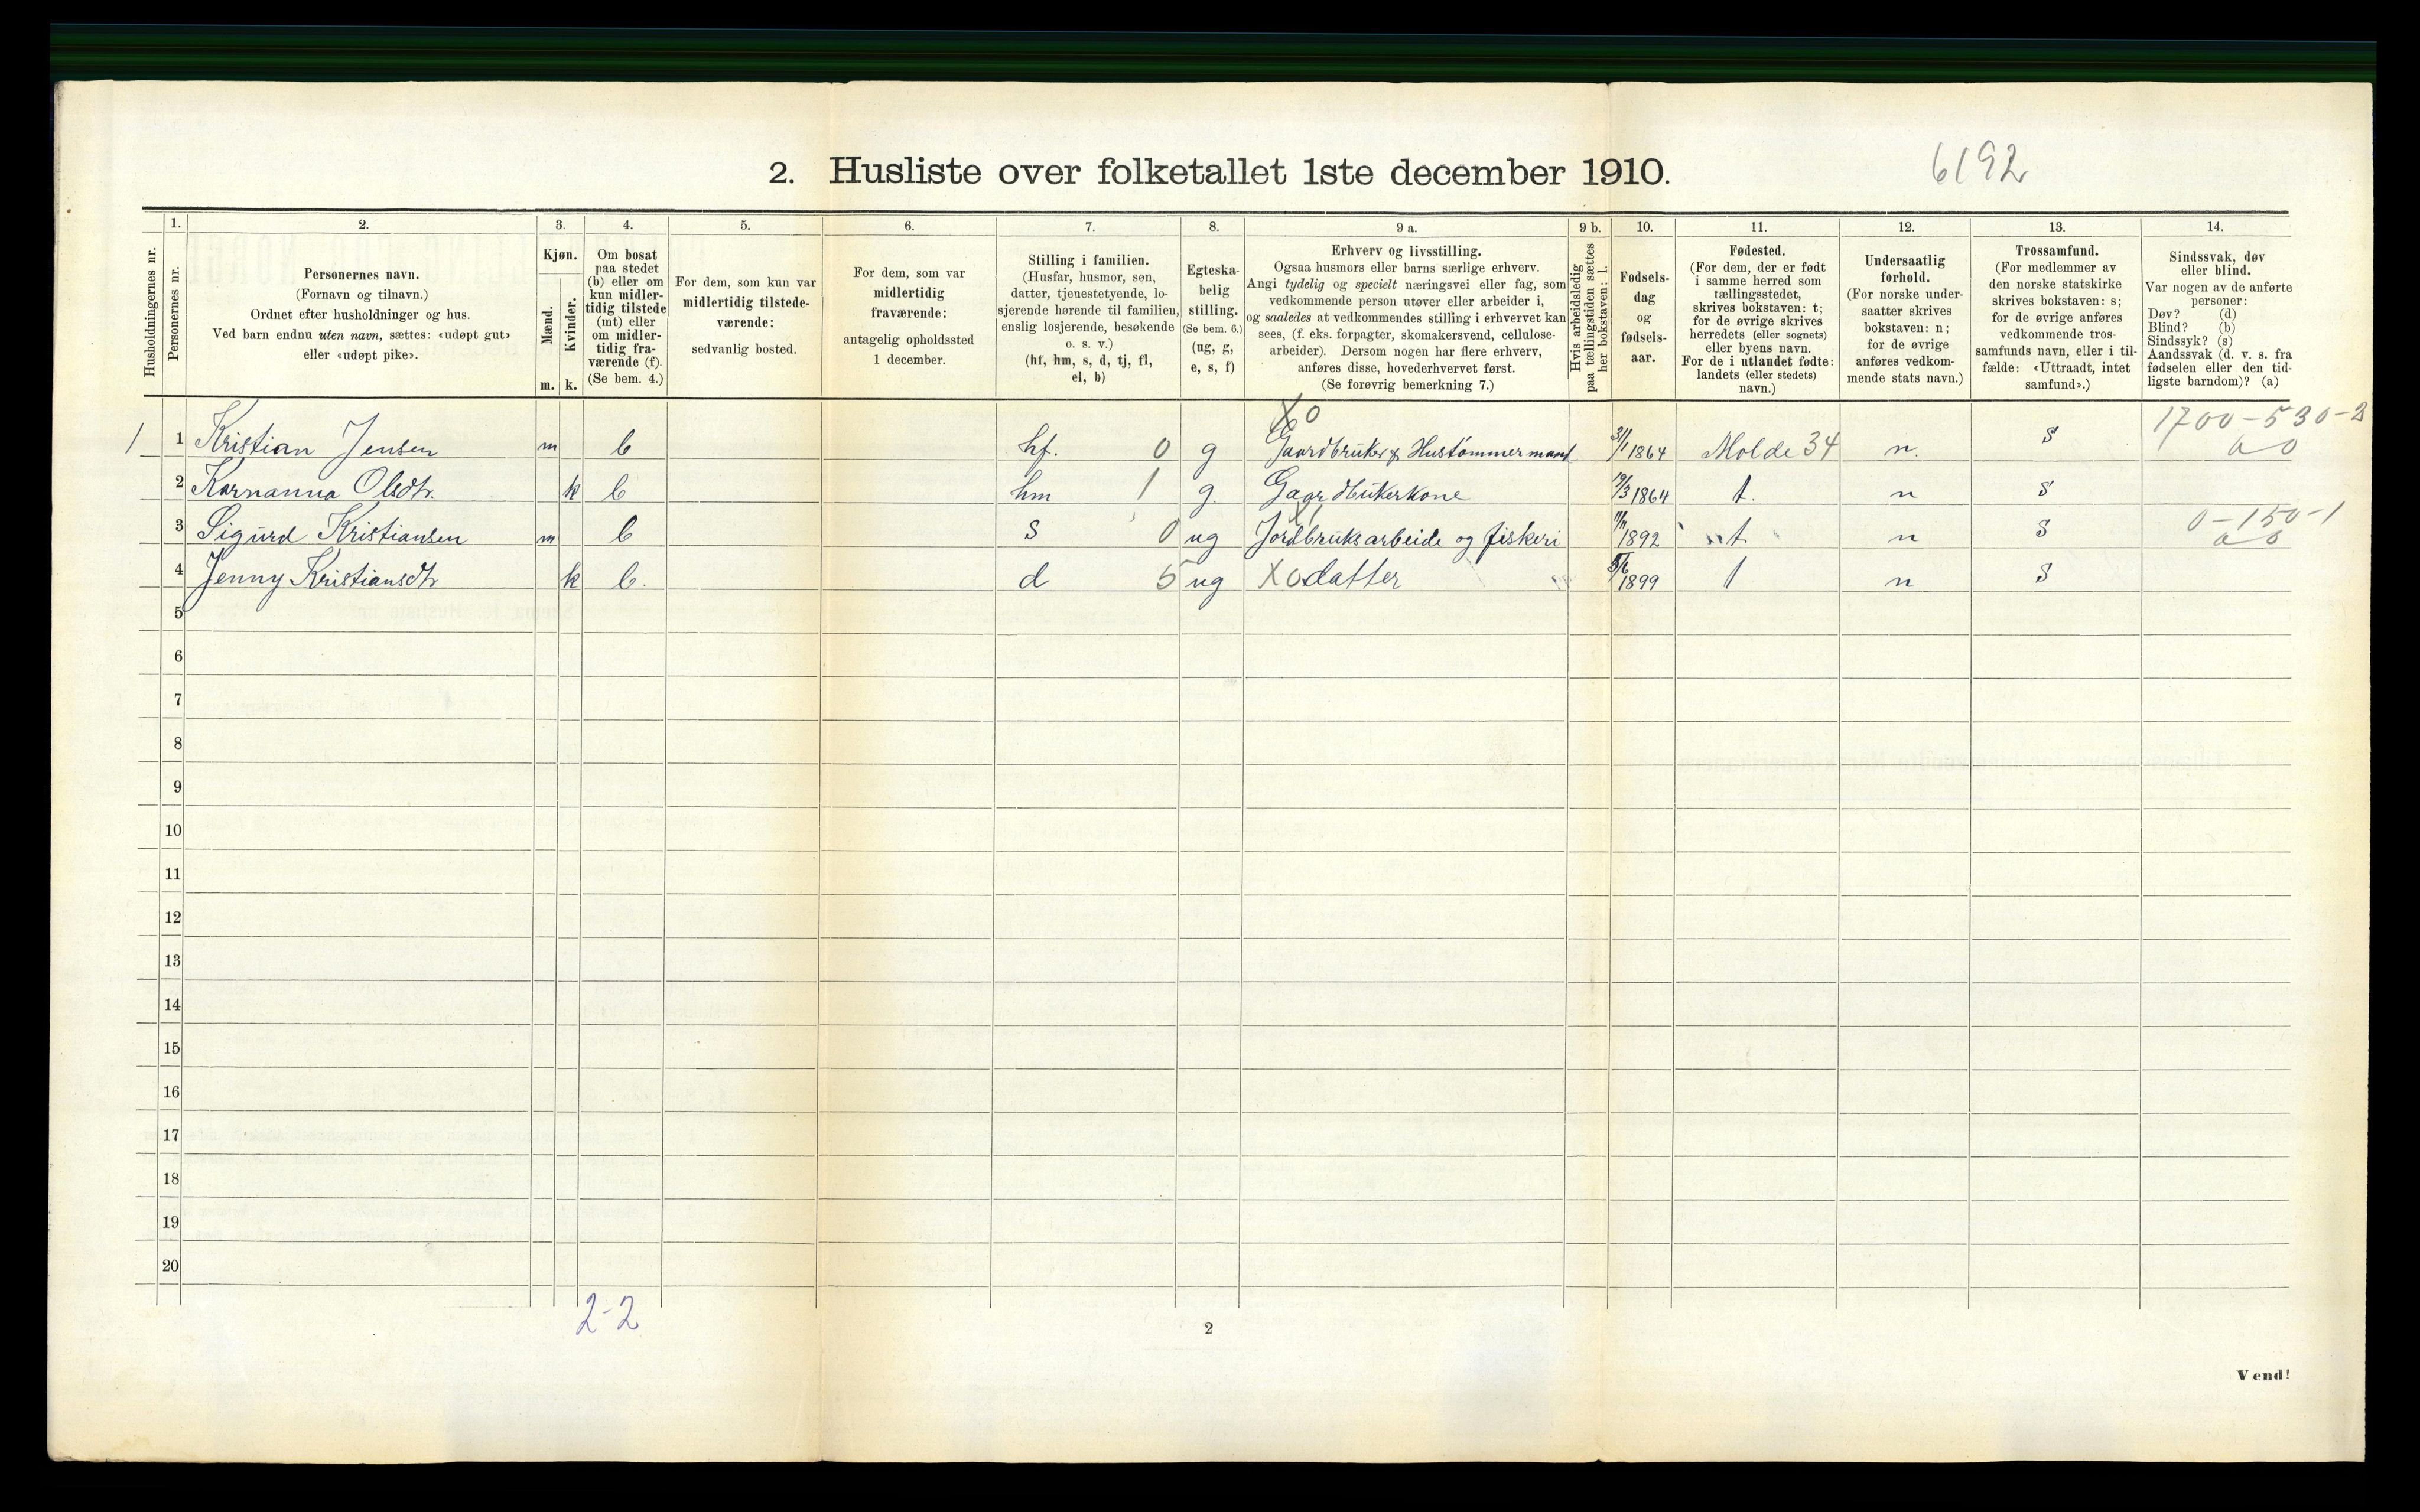 2. Husliste over folketallet 1ste december 1910.
6192
1. 2. 3. 4. 5. 6. 7. 8. 9 a. 9 b. 10. 11. 12. 13. 14.
Husholdningernes nr.
Personernes nr.
Personernes navn.
(Fornavn og tilnavn.)
Ordnet efter husholdninger og hus.
Ved barn endnu uten navn, sættes: «udøpt gut»
eller «udøpt pike».
Kjøn.
Mænd.
Kvinder.
m. k.
Om bosat
paa stedet
(b) eller om
kun midler-
tidig tilstede
(mt) eller
om midler-
tidig fra-
værende (f).
(Se bem. 4.)
For dem, som kun var
midlertidig tilstede-
værende:
sedvanlig bosted.
For dem, som var
midlertidig
fraværende:
antagelig opholdssted
1 december.
Stilling i familien.
(Husfar, husmor, søn,
datter, tjenestetyende, lo-
sjerende hørende til familien,
enslig losjerende, besøkende
o. s. v.)
(hf, hm, s, d, tj, fl,
el, b)
Egteska-
belig
stilling.
(Se bem. 6.)
(ug, g,
e, s, f)
Erhverv og livsstilling.
Ogsaa husmors eller barns særlige erhverv.
Angi tydelig og specielt næringsvei eller fag, som
vedkommende person utøver eller arbeider i,
og saaledes at vedkommendes stilling i erhvervet kan
sees, (f. eks. forpagter, skomakersvend, cellulose-
arbeider). Dersom nogen har flere erhverv,
anføres disse, hovederhvervet først.
(Se forøvrig bemerkning 7.)
Hvis arbeidsledig
paa tællingstiden sættes
her bokstaven: l.
Fødsels-
dag
og
fødsels-
aar.
Fødested.
(For dem, der er født
i samme herred som
tællingsstedet,
skrives bokstaven: t;
for de øvrige skrives
herredets (eller sognets)
eller byens navn.
For de i utlandet fødte:
landets (eller stedets)
navn.)
Undersaatlig
forhold.
(For norske under-
saatter skrives
bokstaven: n;
for de øvrige
anføres vedkom-
mende stats navn.)
Trossamfund.
(For medlemmer av
den norske statskirke
skrives bokstaven: s;
for de øvrige anføres
vedkommende tros-
samfunds navn, eller i til-
fælde: «Uttraadt, intet
samfund».)
Sindssvak, døv
eller blind.
Var nogen av de anførte
personer:
Døv? (d)
Blind? (b)
Sindssyk? (s)
Aandssvak (d. v. s. fra
fødselen eller den tid-
ligste barndom)? (a)
X0 1700-530-2
1 1 Kristian Jensen m b hf. 0 g Gaardbruker & Hustømmermand 31/1 1864 Molde 34 n. s
2 Karnanna Olsdtr. k b hm 1 g. Gaardbrukerkone 19/3 1864 t. n s
3 Sigurd Kristiansen m b s 0 ug Jordbruksarbeide og fiskeri 11/11 1892 t. n s 0-150-1
4 Jenny Kristiansdtr k b. d 5 ug X0 datter 1899 t n s
5
6
7
8
9
10
11
12
13
14
15
16
17
18
19
20
2-2
2
Vend!